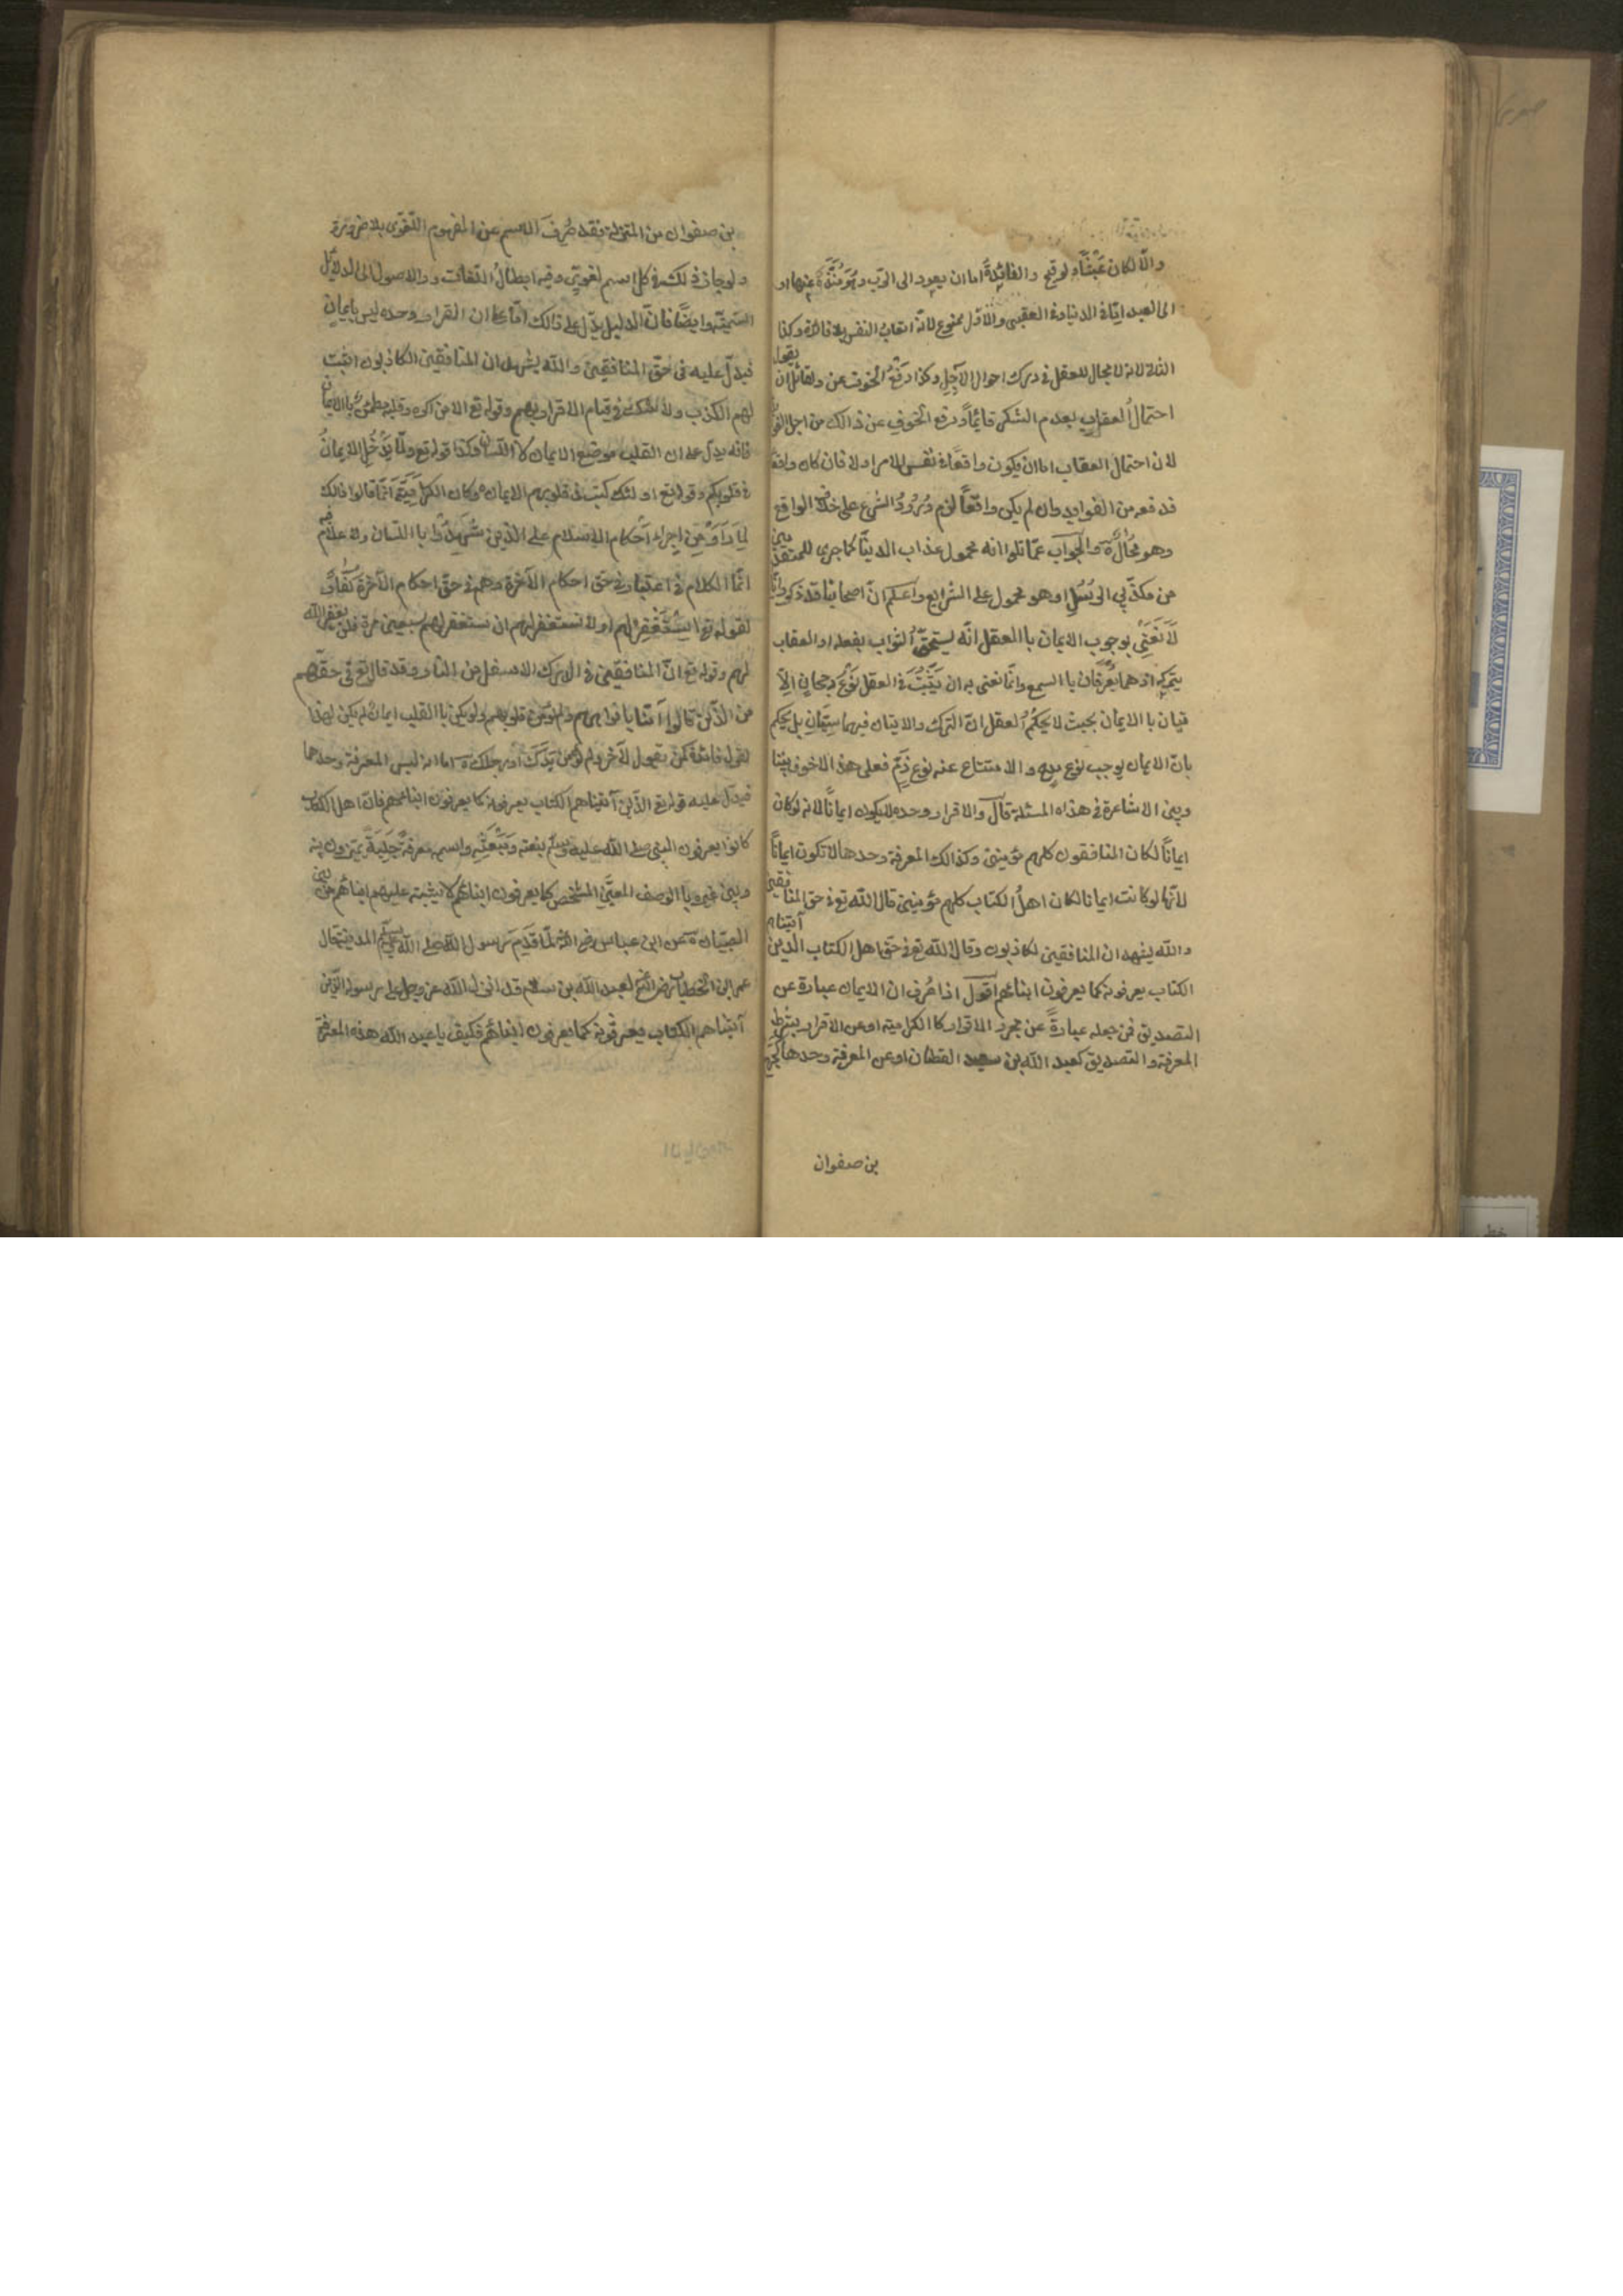 والّا لكان عَبَثًا وقبح والفائدةُ اما ان يعود الى الرّب وهو مُنَزَّه عنها او
الى العبد امّا فى الدنيا او فى العقبى والاوّل ممنوع لانّه اتعاب النفس بلا فائدة وكذا
الثانى لانه لا مجال للعقل فى درك احوال الآجل وكذا دفعُ الخوف عن ولقائل ان يقول
احتمالُ العقاب بعدم الشكر قائمًا ورفع الخوف عن ذالك من اجل الفوا
لان احتمال العقاب اما ان يكون واقعًا فى نفس الامر اولا فان كان واقعا
فدفعه من الفوايد وان لم يكن واقعًا لزم وُرُودُ الشرع على خلاف الواقع
وهو مُحالٌ والجواب عمّا تلوا انه محمول عذاب الدنيا كما جرى للمتقدمين
من مكذّبى الرُسُلِ او هو محمول على الشرايع واعلم انّ اصحابنا قد ذكروا انّا
لا نَعْنِى بوجوب الايمان با العقل انّه يستحقّ الثواب بفعله او العقاب
بتركه اذ هما يُعرفان با السمع وانّما نعنى به ان يَثْبُتَ فى العقل نَوْعُ رجحانِ الا
تيان با الايمان بحيث لا يحكمُ العقل انّ الترك والاتيان فيهما سِيّانِ بل يحكم
بانّ الايمان يوجب نوع مدح والامتناع عنه نوع ذمّ فعلى هذا لا خوف بيننا
وبين الاشاعرة فى هذاه المسئلة قال والاقرار وحده لا يكون ايمانًا لانه لو كان
ايمانًا لكان المنافقون كلهم مؤمنين وكذالك المعرفة وحدها لا تكون ايمانًا
لانّها لو كانت ايمانا لكان اهلُ الكتاب كلهم مؤمنين قال الله تع فى حق المنافقين
والله يشهد ان المنافقين لكاذبون وقال الله تع فى حق اهل الكتاب الذين آتيناهم
الكتاب يعرفونه كما يعرفون ابنائهم اقول اذا عُرف ان الايمان عبارة عن
التصديق فمن جعله عبارةً عن مجرد الاقرار كا الكرامية او عن الاقرار بشرط
المعرفة والتصديق كعبد الله بن سعيد القطان او عن المعرفة وحدها كجهم
بن صفوان
بن صفوان من المعتزلة فقد صُرِفَ الاسم عن المفهوم اللّغوى بلا ضرورة
ولو جاز ذلك فى كل اسم لغوىّ وفيه ابطالُ اللّغات والاصول الى الدلائل
السمعيّة وايضًا فانّ الدليل يدلّ على ذالك امّا على ان القرار وحده ليس بايمان
فيدلّ عليه فى حقّ المنافقين والله يشهد ان المنافقين الكاذبون اثبت
لهم الكذب ولا شك فى قيام الاقرار بهم وقوله تع الا من اكره وقلبه مطمئنّ با الايمان
فانّه يدلّ على ان القلب موضع الايمان لا اللسان وكذا قوله تع ولمّا يَدْخُلِ الايمانُ
فى قلوبكم وقوله تع اولئك كتب فى قلوبهم الايمان وكان الكرّاميّة انّما قالوا ذالك
لِمَا رَأَوْ مِن اجراء احكام الاسلام على الّذين شَهِدُوا با اللسان ولا كلام فيه
انّما الكلام فى اعتباره فى حق احكام الآخرة وهم فى حقّ احكام الآخرة كفّارٌ
لقوله تع اِسْتَغْفِرْ لهم او لا تستغفر لهم ان تستغفر لهم سبعين مرة فلن يغفر الله
لهم وقوله تع انّ المنافقين فى الدرك الاسفل من النار وقد قال تع فى حقّهم
من الّذين قالوا آمنّا بافواههم ولم تؤمن قلوبهم ولو لم يكن با القلب ايمانٌ لم يكن لهذا
القول فائدة كمن يقول لآخر لم تؤمن يَدُكَ او رجلك امّا انه ليس المعرفة وحدها
فيدلّ عليه قوله تع الّذين آتيناهم الكتاب يعرفونه كما يعرفون ابنائهم فانّ اهل الكتاب
كانوا يعرفون النبى صلى الله عليه وسلّم بنعته ومَبْعَثِه واسمه معرفةً جَلِيَةً يميّزون به
وبين غيره با الوصف المعيّن المشخص كما يعرفون ابنائهم لا يشتبه عليهم ابنائهم من بين
الصبيان عن ابن عباس رضى الله لمّا قَدِمَ رسول الله صلى الله عليه وسلم المدينة قال
عمر ابن الخطاب رضى الله لعبد الله بن سلام قد انزل الله عز وجل على رسوله الّذين
آتيناهم الكتاب يعرفونه كما يعرفون ابنائهم فكيف يا عبد الله هذه المعرفة